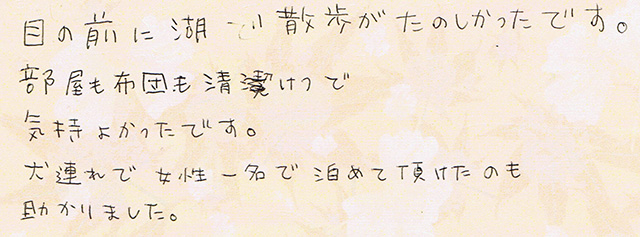 目の前に湖で散歩がたのしかったです。
部屋も布団も清潔けつで
気持よかったです。
犬連れで女性一名で泊めて頂けたのも
助かりました。